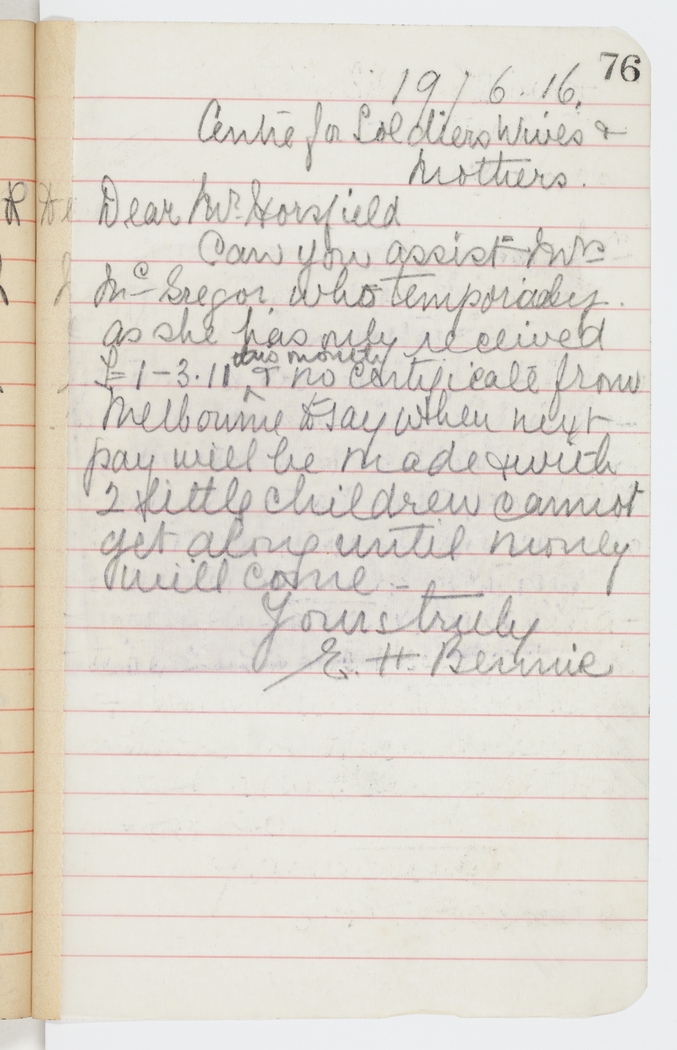 76
19/6.16.
Centre for Soldiers Wives &
Mothers.
Dear Mr. Horsfield
Can you assist Mrs
McGregor who temporarily.
as she has only received
this month
£=1-3.11 & no certificate from
Melbourne to say when next
pay will be made & with
2 little children cannot
get along until money
will come -
Yours truly
E. H. Bennie